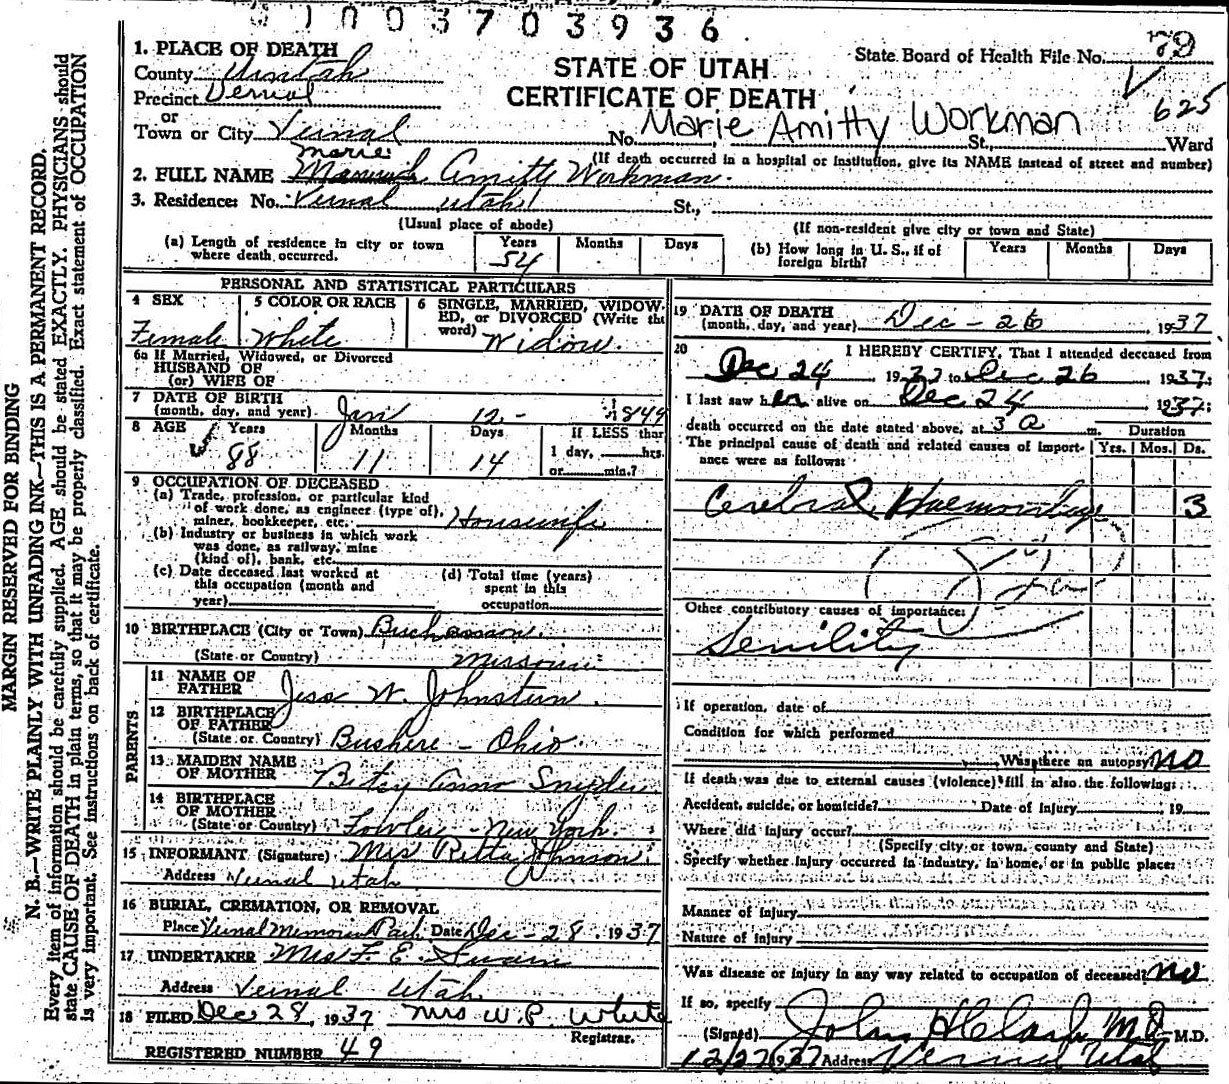 1003703936
1. PLACE OF DEATH
County Uintah
Precinct Vernal
or
Town or City Vernal
STATE OF UTAH
CERTIFICATE OF DEATH
State Board of Health File No. 79
625
No. Marie Amitty Workman St., Ward
(If death occurred in a hospital or institution, give its NAME instead of street and number)
Marie
2. FULL NAME Amitty Workman.
3. Residence: No. Vernal Utah St.,
(Usual place of abode) (If non-resident give city or town and State)
(a) Length of residence in city or town where death occurred. Years 54 Months Days
(b) How long in U. S., if of foreign birth? Years Months Days
PERSONAL AND STATISTICAL PARTICULARS
4 SEX Female
5 COLOR OR RACE White
6 SINGLE, MARRIED, WIDOWED, or DIVORCED (Write the word) Widow.
6a If Married, Widowed, or Divorced
HUSBAND OF
(or) WIFE OF
7 DATE OF BIRTH
(month, day, and year) Jan 12 - 1849
8 AGE Years 88 Months 11 Days 14
If LESS than
1 day, hrs.
or min.?
9 OCCUPATION OF DECEASED
(a) Trade, profession, or particular kind
of work done, as engineer (type of),
miner, bookkeeper, etc. Housewife
(b) Industry or business in which work
was done, as railway, mine
(kind of), bank, etc.
(c) Date deceased last worked at
this occupation (month and
year)
(d) Total time (years)
spent in this
occupation
10 BIRTHPLACE (City or Town) Buchannon.
(State or Country) Missouri
PARENTS
11 NAME OF
FATHER Jess W. Johnstun.
12 BIRTHPLACE
OF FATHER
(State or Country) Bushere - Ohio.
13 MAIDEN NAME
OF MOTHER Betsy Ann Snyder
14 BIRTHPLACE
OF MOTHER
(State or Country) Fowler - New York.
15 INFORMANT (Signature) Mrs Johnson.
Address Vernal Utah
16 BURIAL, CREMATION, OR REMOVAL
Place Vernal Memorial Park Date Dec - 28. 1937
17 UNDERTAKER Mrs F. E. Swain
Address Vernal Utah
18 FILED Dec 28, 1937 Mrs W. P. White
Registrar.
REGISTERED NUMBER 49
19 DATE OF DEATH
(month, day, and year) Dec - 26, 1937
20 I HEREBY CERTIFY, That I attended deceased from
Dec 24, 1937 to Dec 26 1937
I last saw her alive on Dec 24 1937
death occurred on the date stated above, at 3 a m. Duration
The principal cause of death and related causes of importance were as follows: Yrs. Mos. Ds.
Cerebral Haemorrhage 3
Other contributory causes of importance:
Senility
If operation, date of
Condition for which performed
Was there an autopsy? NO
If death was due to external causes (violence) fill in also the following:
Accident, suicide, or homicide? Date of Injury 19
Where did injury occur?
(Specify city or town, county and State)
Specify whether injury occurred in industry, in home, or in public place:
Manner of injury
Nature of injury
Was disease or injury in any way related to occupation of deceased? No
If so, specify
(Signed) John M.D. M.D.
12/27 1937 Address Vernal Utah
MARGIN RESERVED FOR BINDING
N. B.—WRITE PLAINLY WITH UNFADING INK—THIS IS A PERMANENT RECORD.
Every item of information should be carefully supplied. AGE should be stated EXACTLY. PHYSICIANS should
state CAUSE OF DEATH in plain terms, so that it may be properly classified. Exact statement of OCCUPATION
is very important. See instructions on back of certificate.